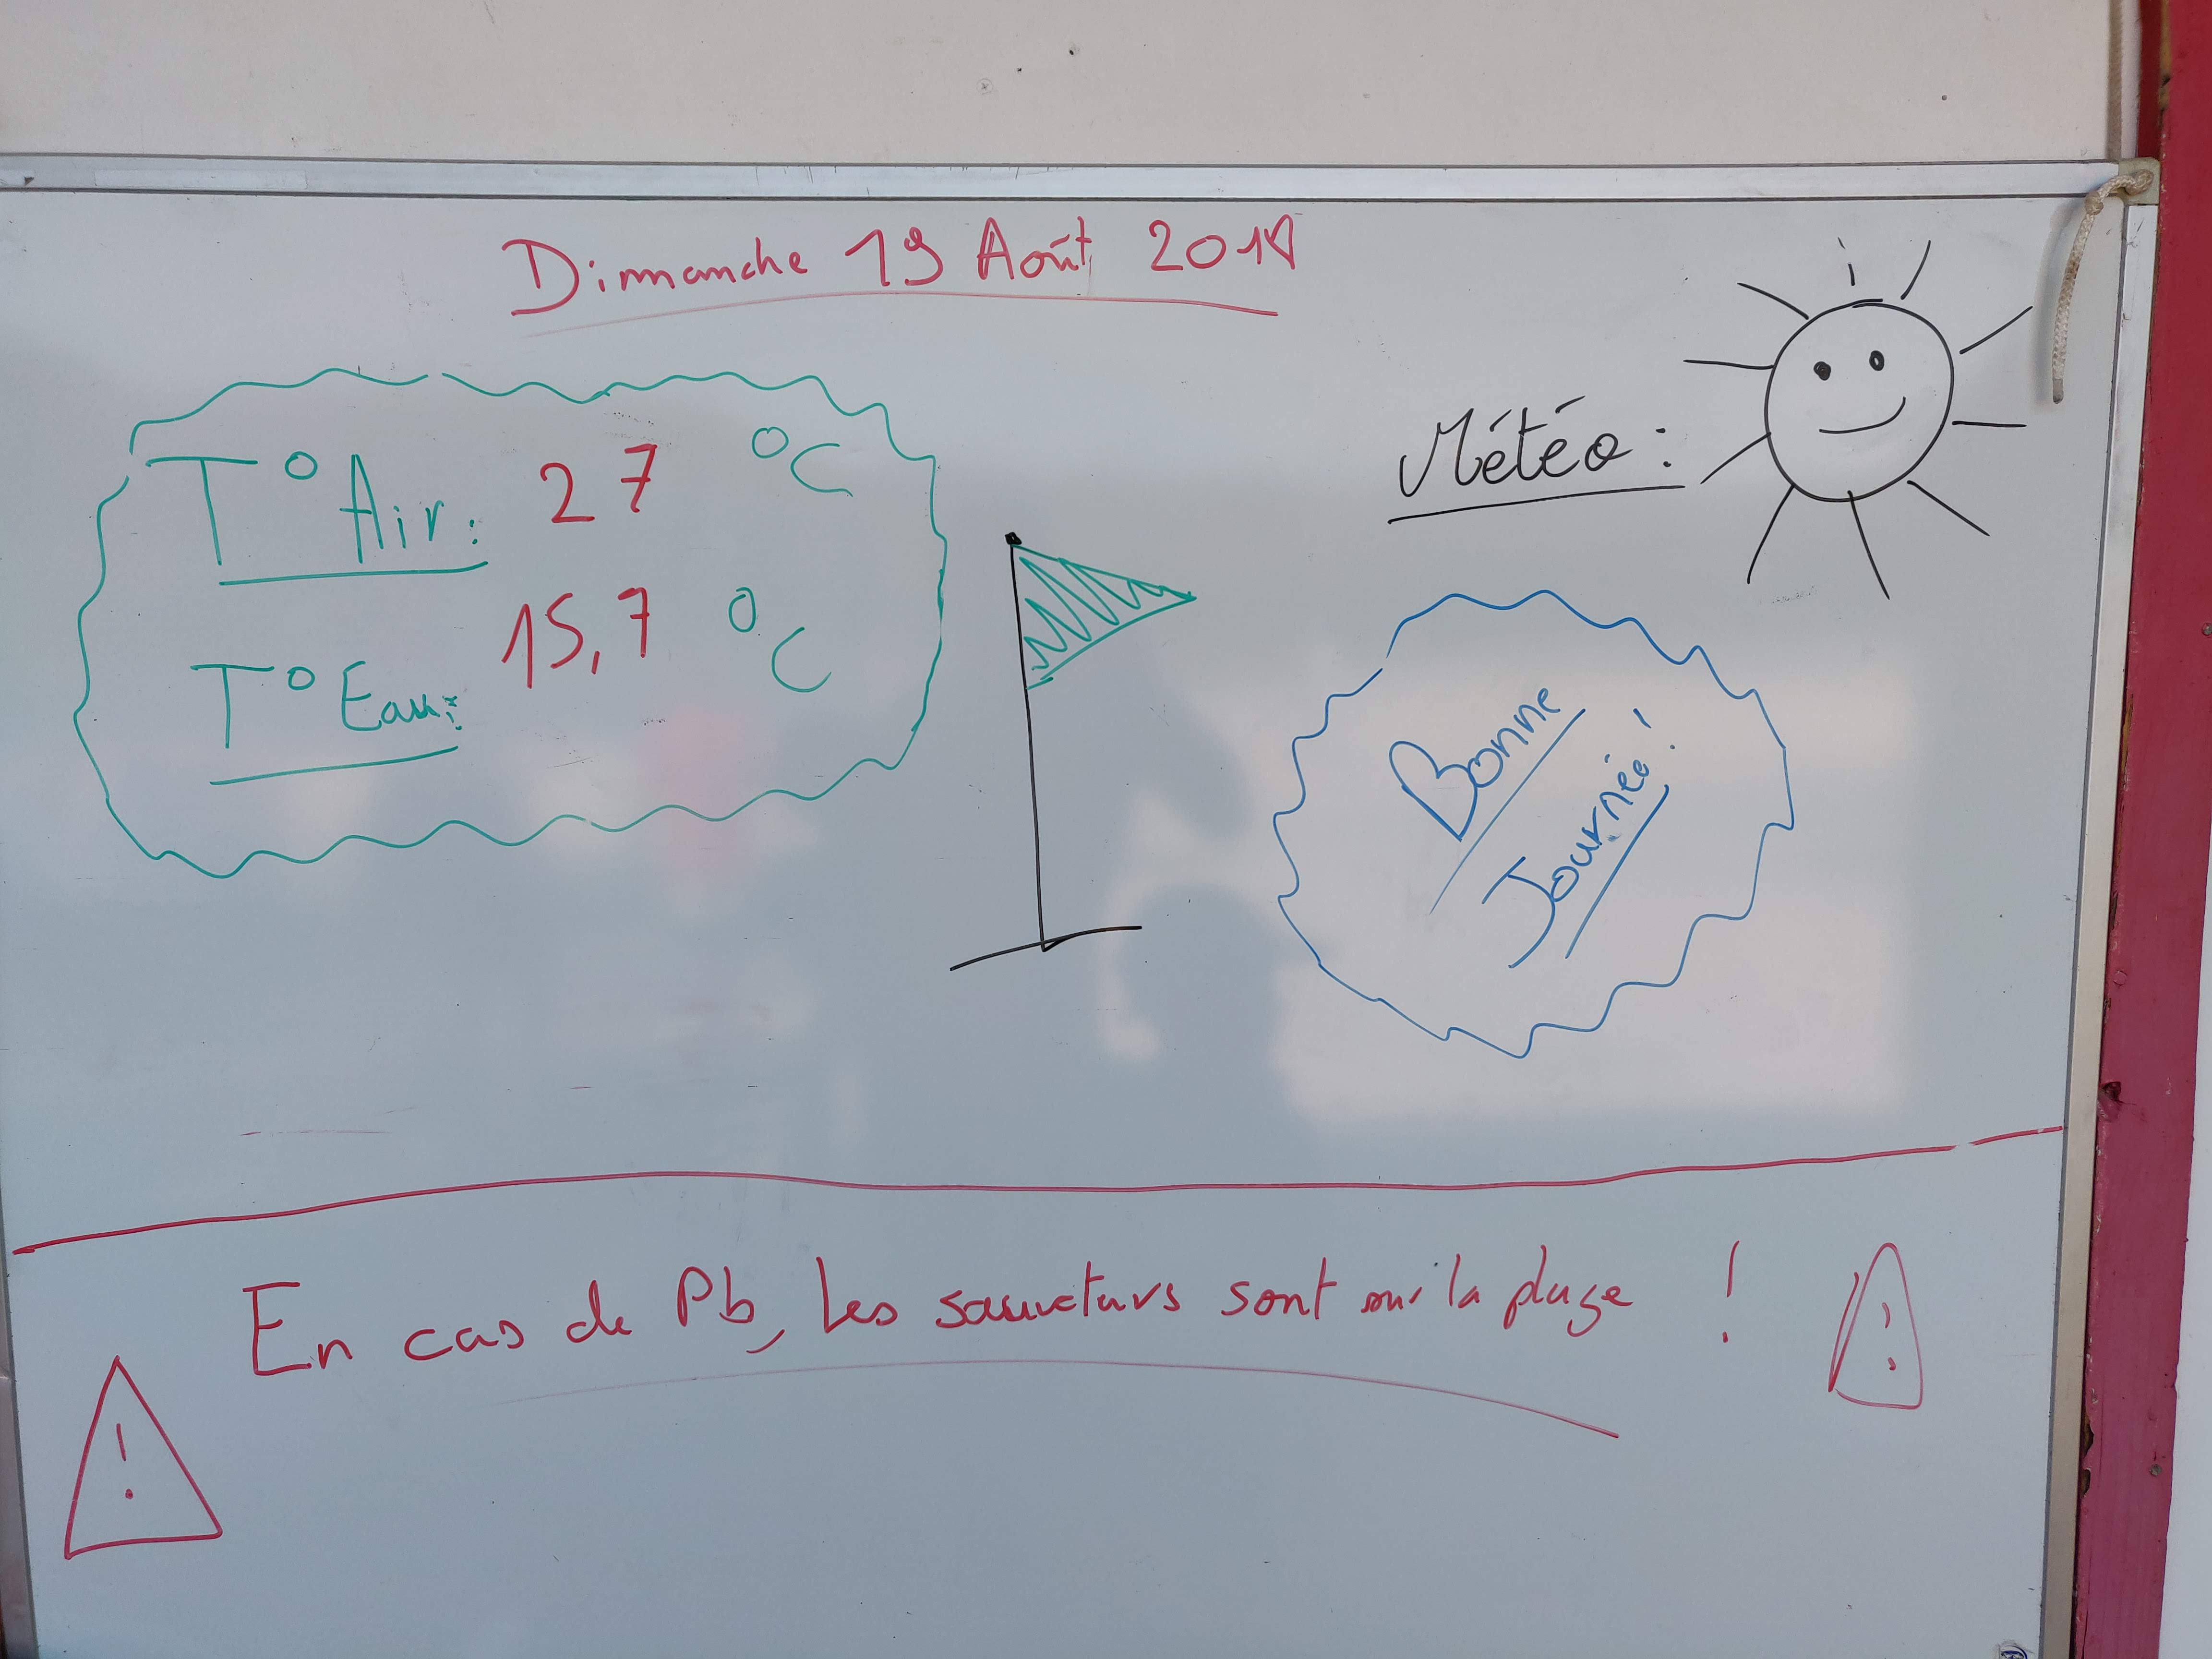 Dimanche 19 Août 2018
T° Air: 27 °C
T° Eau: 15,7 °C
Météo:
Bonne
Journée!
En cas de Pb, Les sauveteurs sont sur la plage !